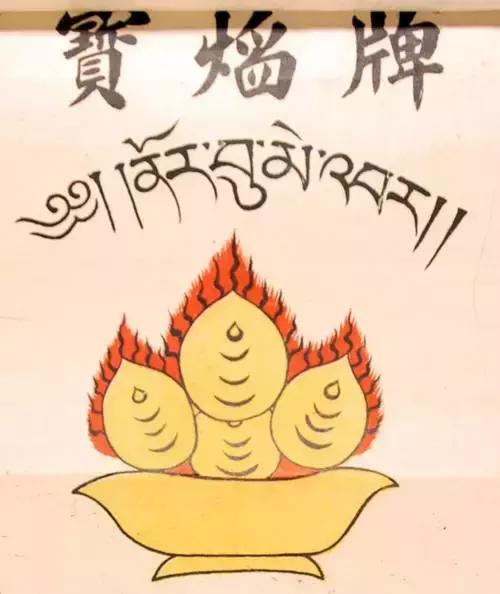 寶熖牌
༄༅། །ནོར་བུ་མེ་འབར།།